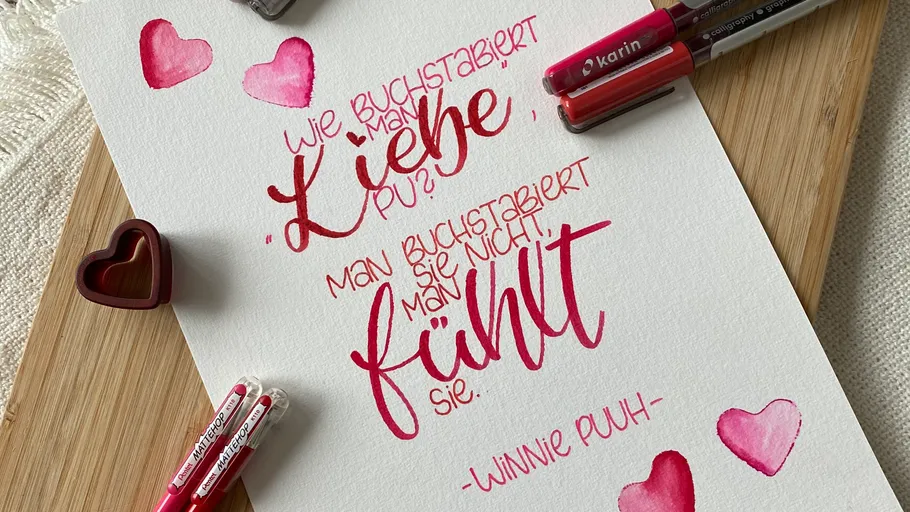 WIE BUCHSTABIERT
MAN
„Liebe“,
PU?
MAN BUCHSTABIERT
SIE NICHT,
MAN
fühlt
SIE.
-WINNIE PUUH-
karin
calligraphy
calligraphy
Pentel MATTEHOP K110
Pentel MATTEHOP K110